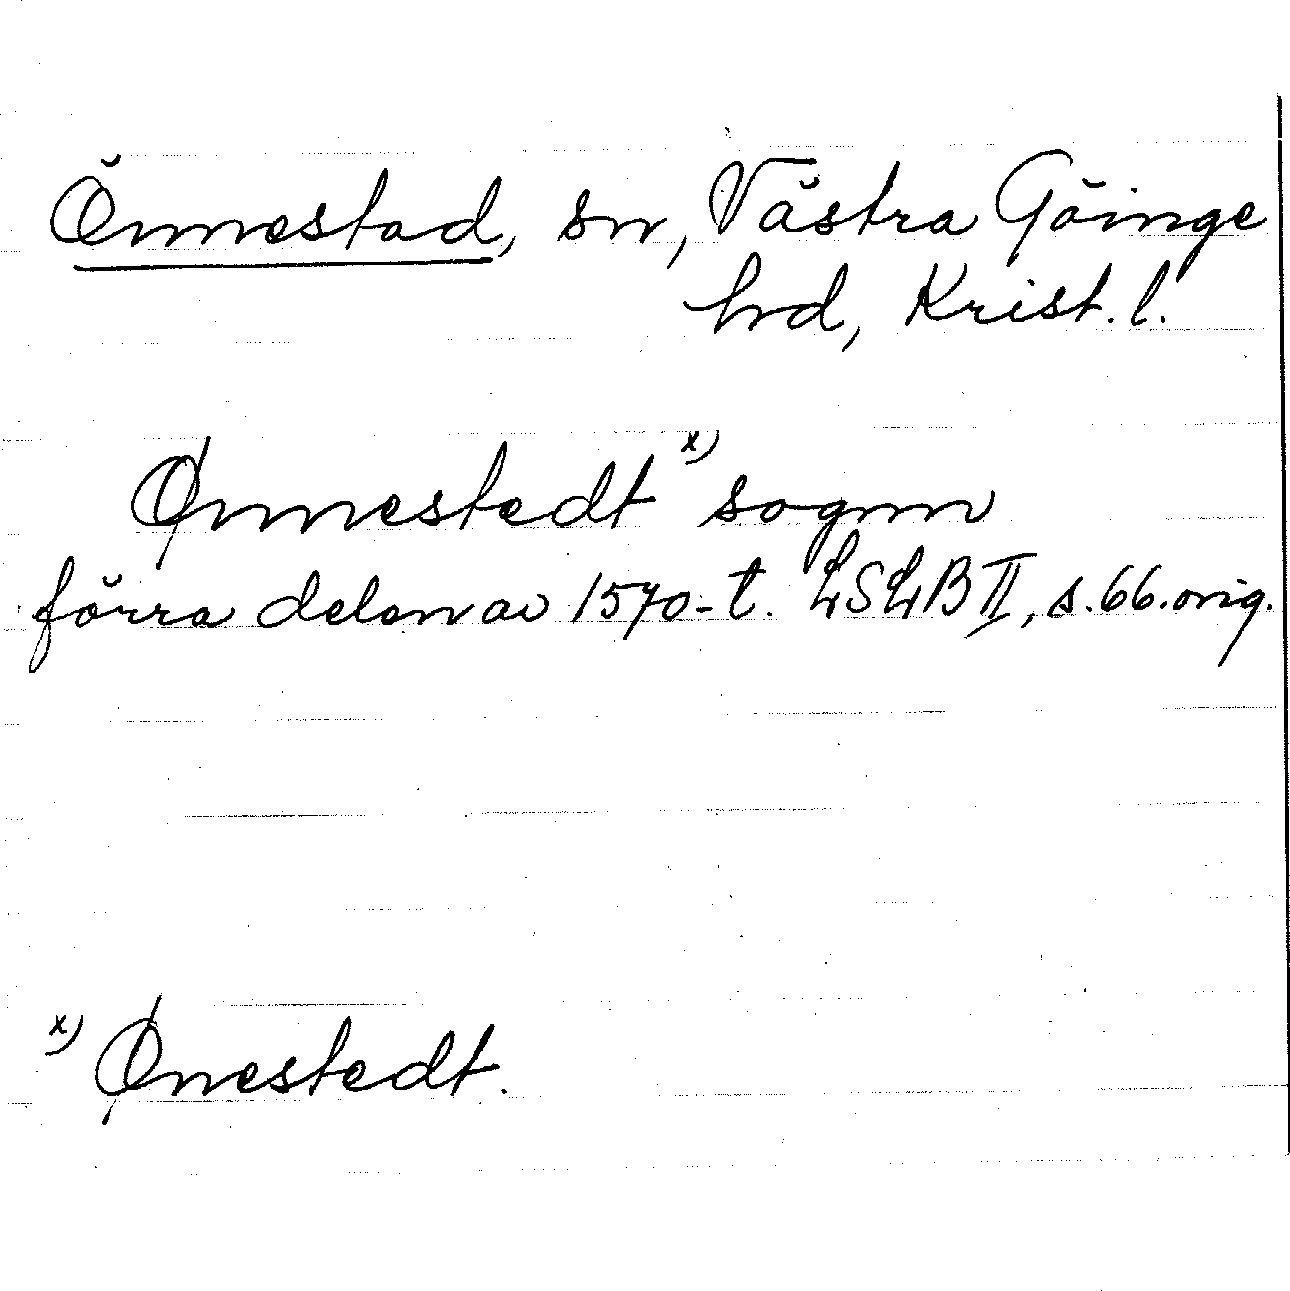 Önnestad, sn, Västra Göinge
hd, Krist. l.
Ønnestedt x) sognn
förra delen av 1570-t. LSLB II, s. 66. orig.
x) Ønestedt.